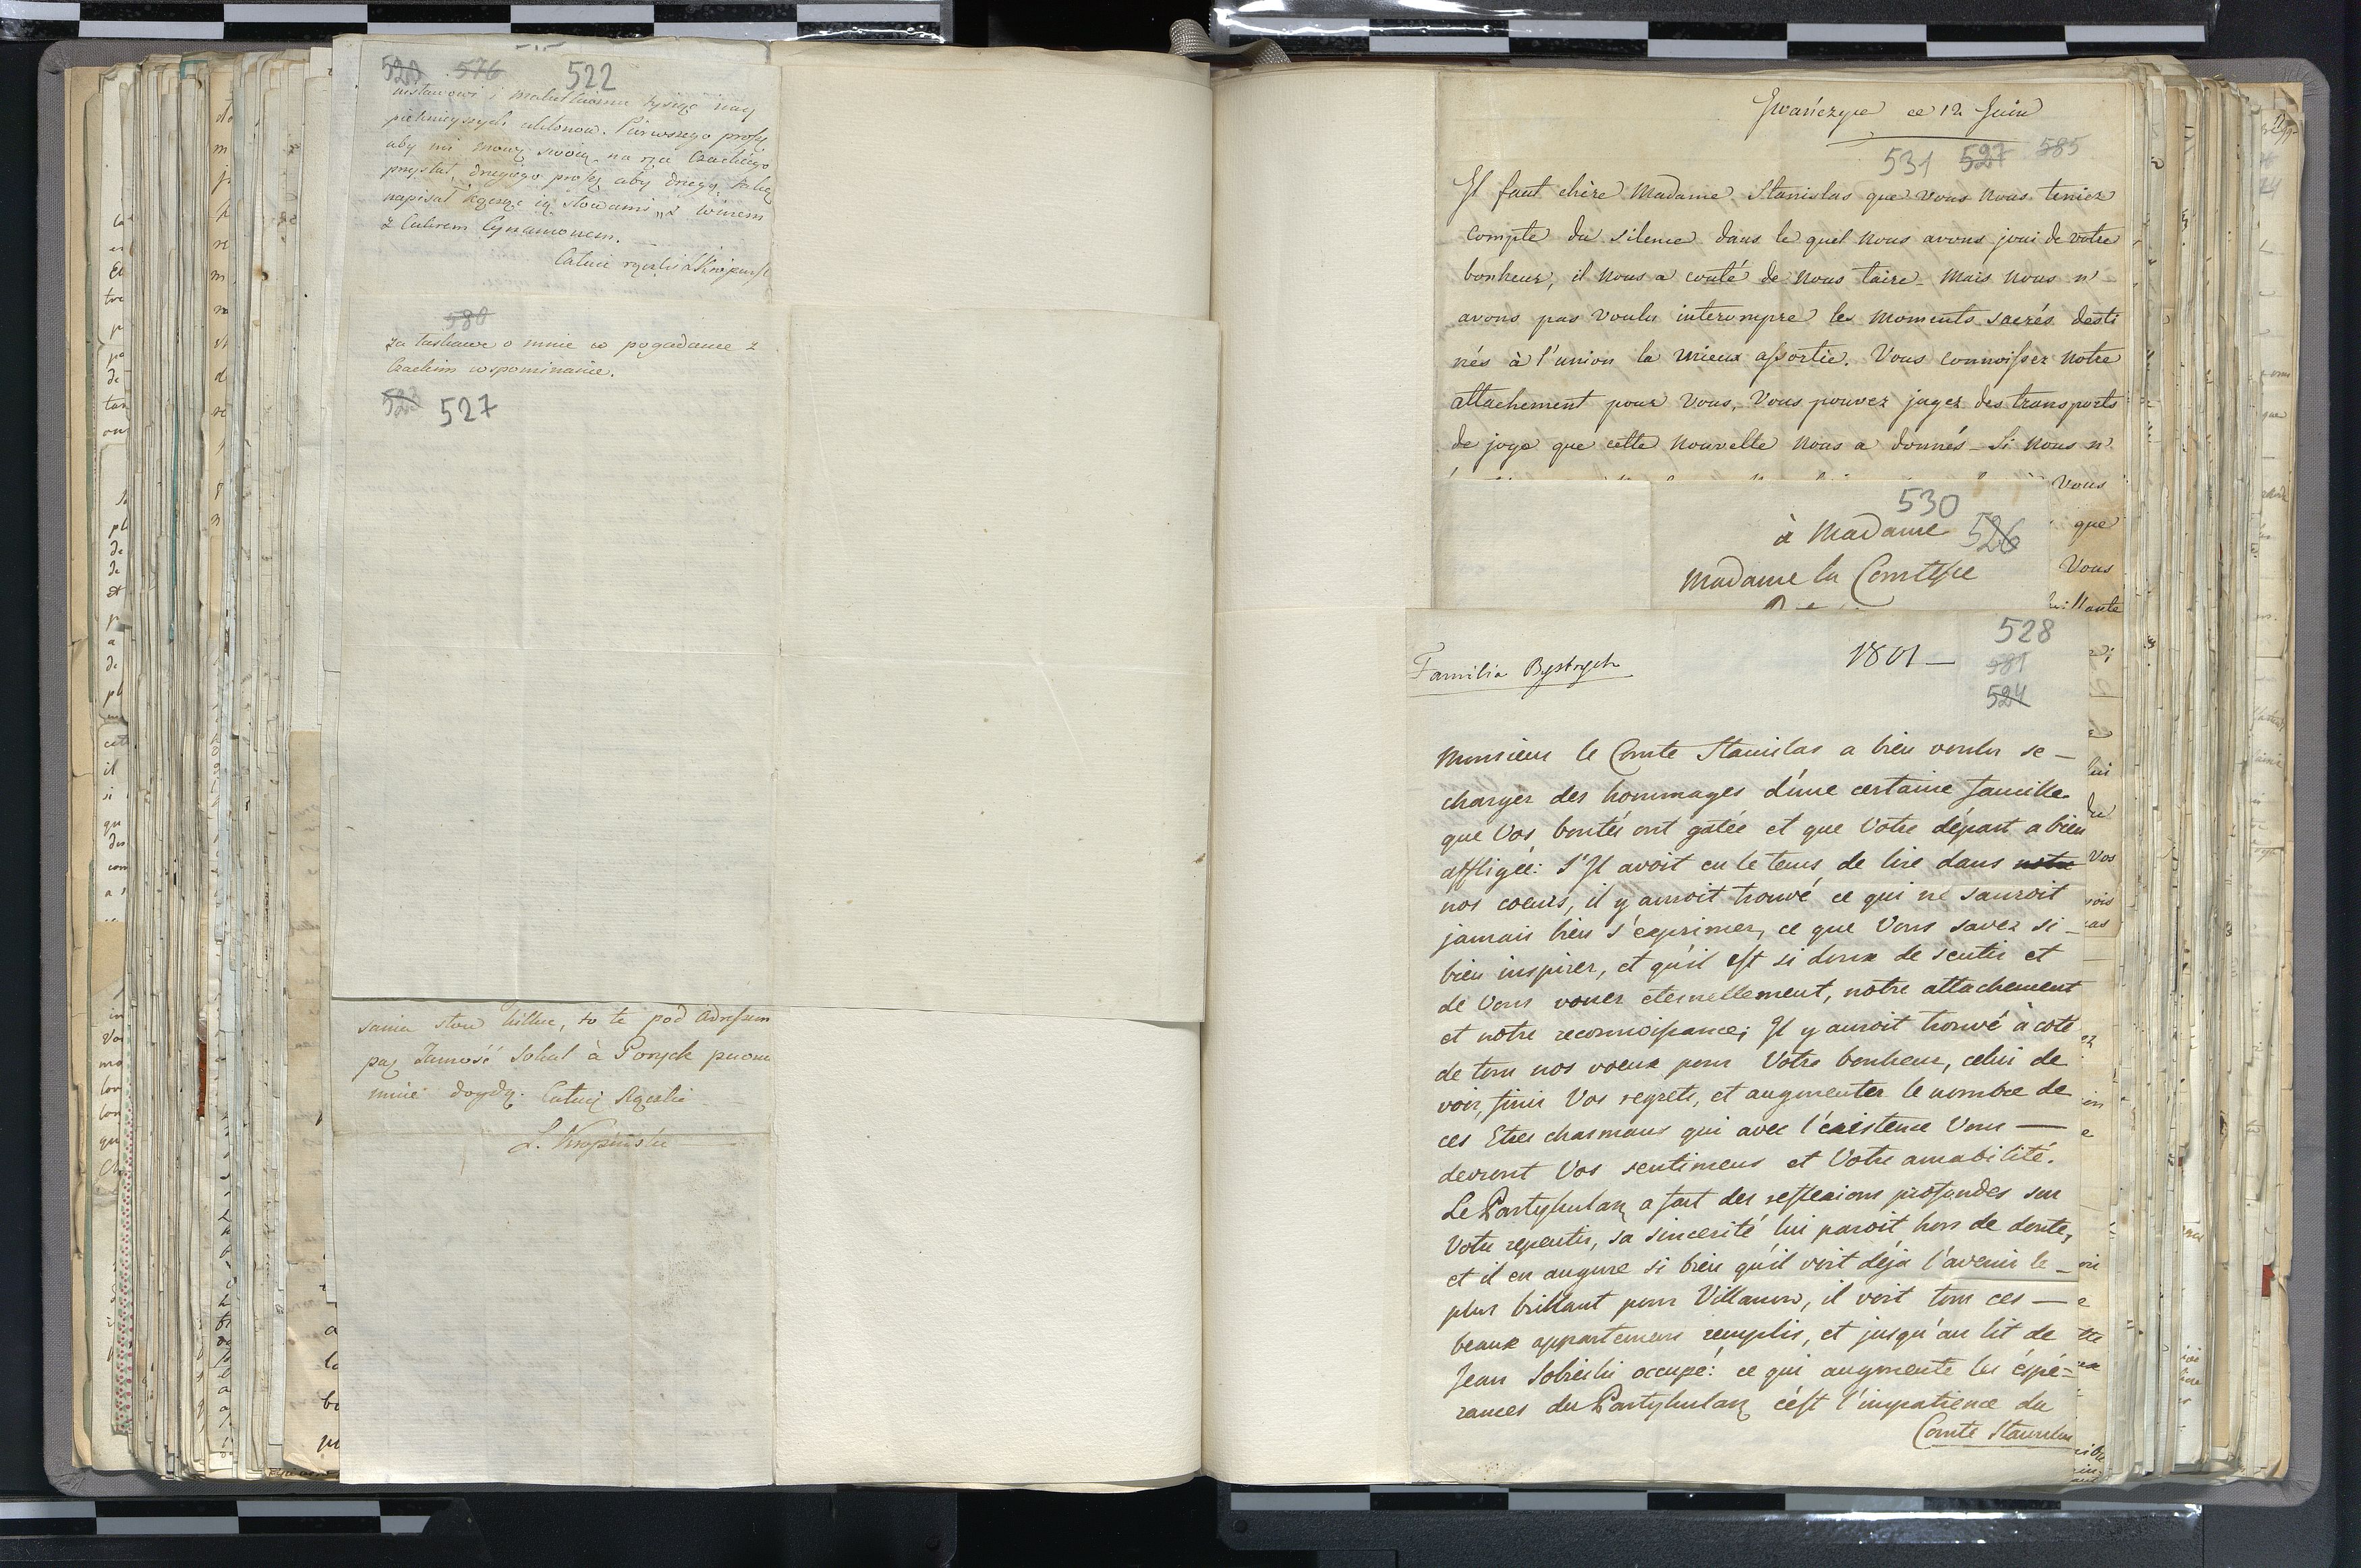 523 576 522
pięknieyszych ukłonow. Pierwszego proszę
aby mi mowę swoią na Czackiego
przysłał, drugiego proszę aby drugą
napisał słowami „z winem
z Cukrem Cynamonem.
Całuię rączki LKropiński
580
za łaskawe o mnie w pogadance z
Czackim wspominanie.
523 527
słow kilku, to te pod Adressem
par Zamość Sokal à Poryck
mnie doydą. Całuię Rączki
L. Kropiński
Gwańczyce ce 12 Juin
531 527 585
Il faut chère Madame Stanislas que vous nous teniez
compte du silence dans le quel nous avons joui de votre
bonheur, il nous a couté de nous taire - mais nous n'
avons pas voulu interompre les moments sacrés desti
nés à l'union la mieux assortie. Vous connoissez notre
attachement pour vous, vous pouvez juger des transports
de joye que cette nouvelle nous a donnés - Si nous n'
vous
530
que
à Madame 526
Vous
Madame la Comtesse
528
Familia Bystrych 1801 —
581
524
Monsieur le Comte Stanislas a bien voulu se —
charger des hommages d'une certaine famille
que Vos bontés ont gatée et que Votre départ a bien
affligée: S'Il avoit eu le tems de lire dans notre
nos coeurs, il y auroit trouvé ce qui ne sauroit
jamais bien s'exprimer, ce que Vous savez si —
bien inspirer, et qu'il est si doux de sentir et
de Vous vouer eternellement, notre attachement
et notre reconnoissance; Il y auroit trouvé à coté
de tous nos voeux pour Votre bonheur, celui de
voir finir Vos regrets, et augmenter le nombre de
ces Etres charmans qui avec l'existence Vous —
devront Vos sentimens et Votre amabilité.
Le Partykularz a fait des reflexions profondes sur
Votre repentir, sa sincerité lui paroit hors de doute,
et il en augure si bien qu'il voit déja l'avenir le —
plus brillant pour Villanow, il voit tous ces —
beaux appartemens remplis, et jusqu'au lit de
Jean Sobieski occupé: ce qui augmente les éspé=
rances du Partykularz c'est l'impatience du
Comte Stanislas